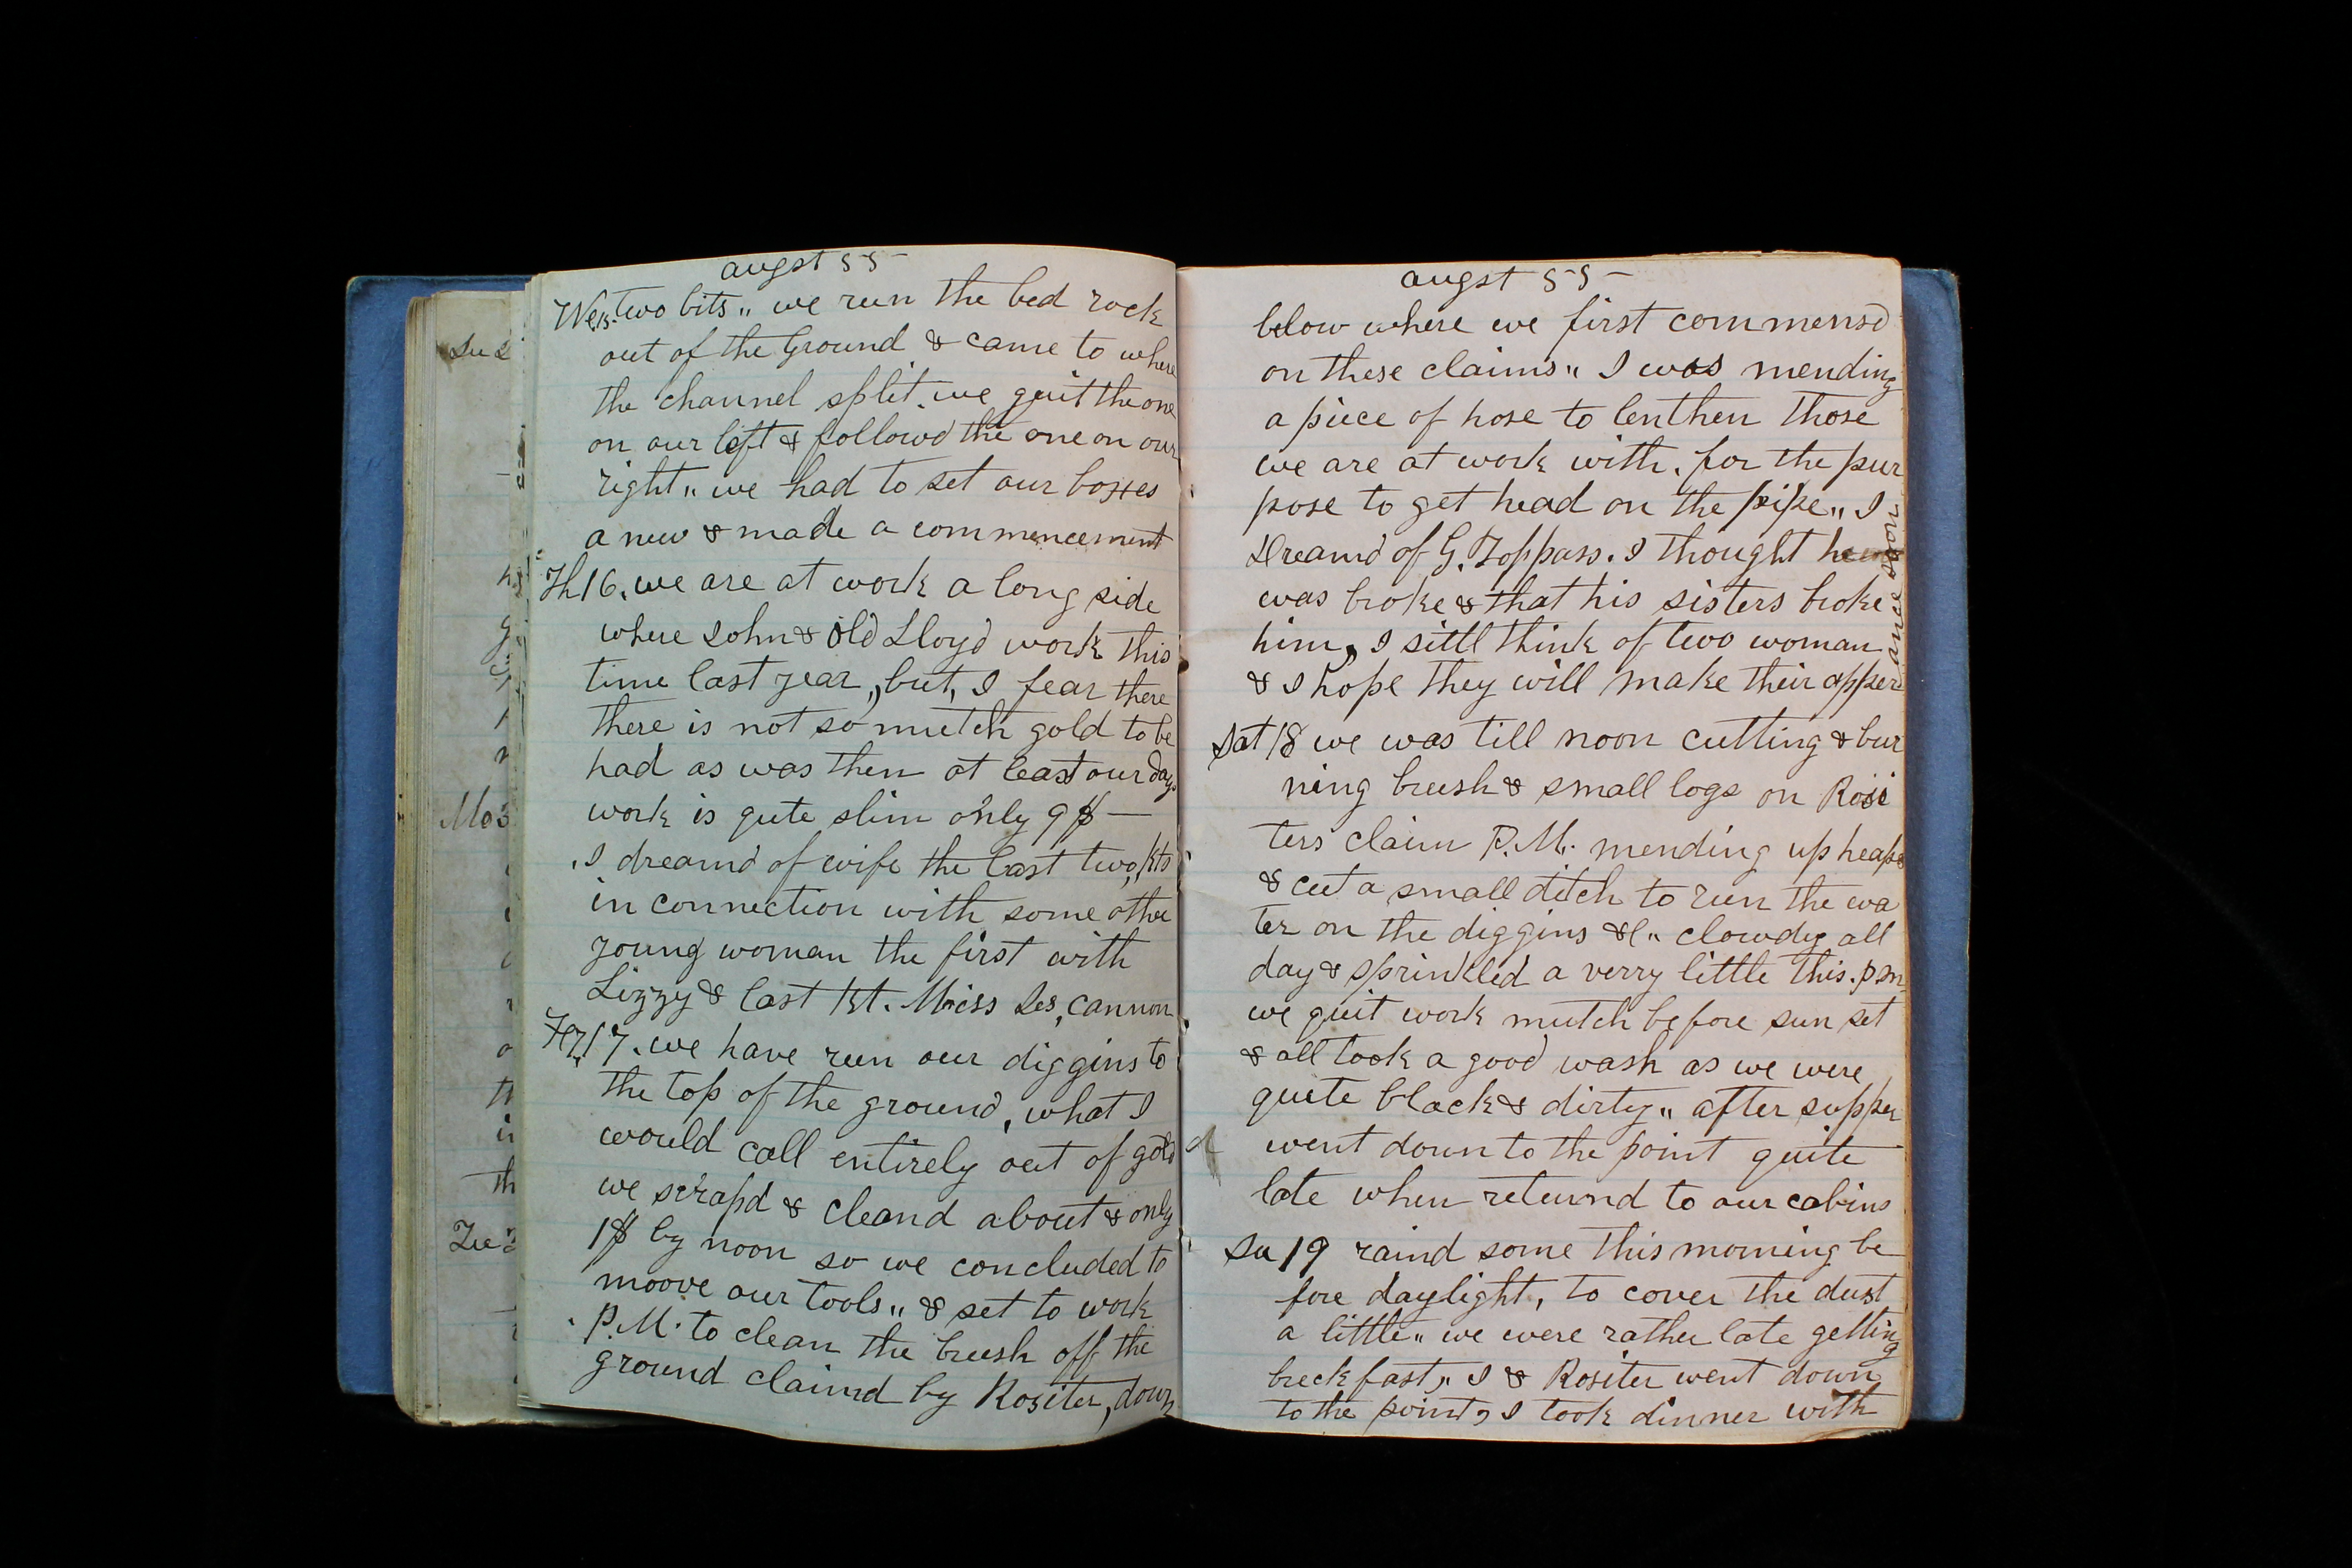 augst 55-
We,15. two bits " we run the bed rock
out of the Ground & came to where
the channel split. we quit the one
on our left & followd the one on our
right " we had to set our boxes
a new & made a commencement
Th 16. we are at work a long side
where John & old Lloyd work this
time last year, but, I fear there
there is not so mutch gold to be
had as was then at least our days
work is qute slim only 9$ —
I dreamd of wife the last two, nts
in connection with some other
young woman the first with
Lizzy & last nt. Miss Les, cannon
17. we have run our diggins to
the top of the ground, what I
would call entirely out of gold
we scrapd & cleand about & only
1$ by noon so we concluded to
moove our tools " & set to work
P.M. to clean the brush off the
ground claimd by Rositer, down
augst 55-
blow where we first commensd
on these claims " I was mending
a piece of hose to lenthen those
we are at work with. for the pur
pose to get head on the pipe " I
Dreamd of G. Toppass. I thought he
was broke & that his sisters broke
him, I sittl think of two woman
& I hope they will make their apper
ance soon
Sat 18 we was till noon cutting & bur
ning brush & small logs on Rosi
ters claim P.M. mending up heaps
& cut a small ditch to run the wa
ter on the diggins &c " clowdy all
day & sprinkled a verry little this. pm
we quit work mutch before sun set
& all took a good wash as we were
quite black & dirty " after supper
went down to the point quite
late when returnd to our cabins
Su 19 raind some this morning be
fore daylight, to cover the dust
a little " we were rather late getting
breckfast " I & Rositer went down
to the point, I took dinner with
Su 2
Mo 3
Tu 2